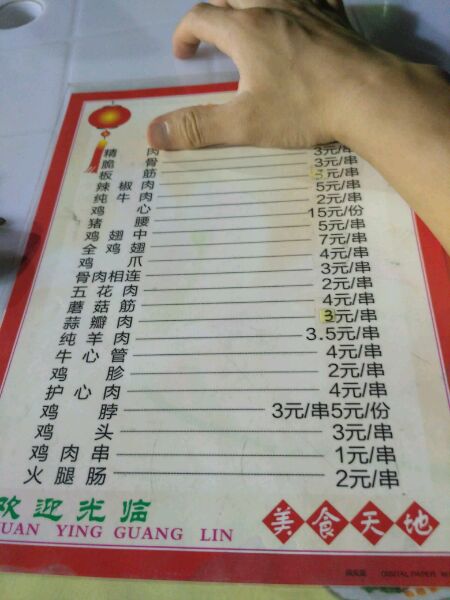 精肉
脆骨 3元/串
板筋 3元/串
辣椒肉 元/串
纯牛肉 5元/串
鸡心 2元/串
猪腰 15元/份
鸡翅中 5元/串
全鸡翅 7元/串
鸡爪 4元/串
骨肉相连 3元/串
五花肉 2元/串
蘑菇筋 4元/串
蒜瓣肉 3元/串
纯羊肉 3.5元/串
牛心管 4元/串
鸡胗 2元/串
护心肉 4元/串
鸡脖 3元/串5元/份
鸡头 3元/串
鸡肉串 1元/串
火腿肠 2元/串
欢迎光临
HUAN YING GUANG LIN
美食天地